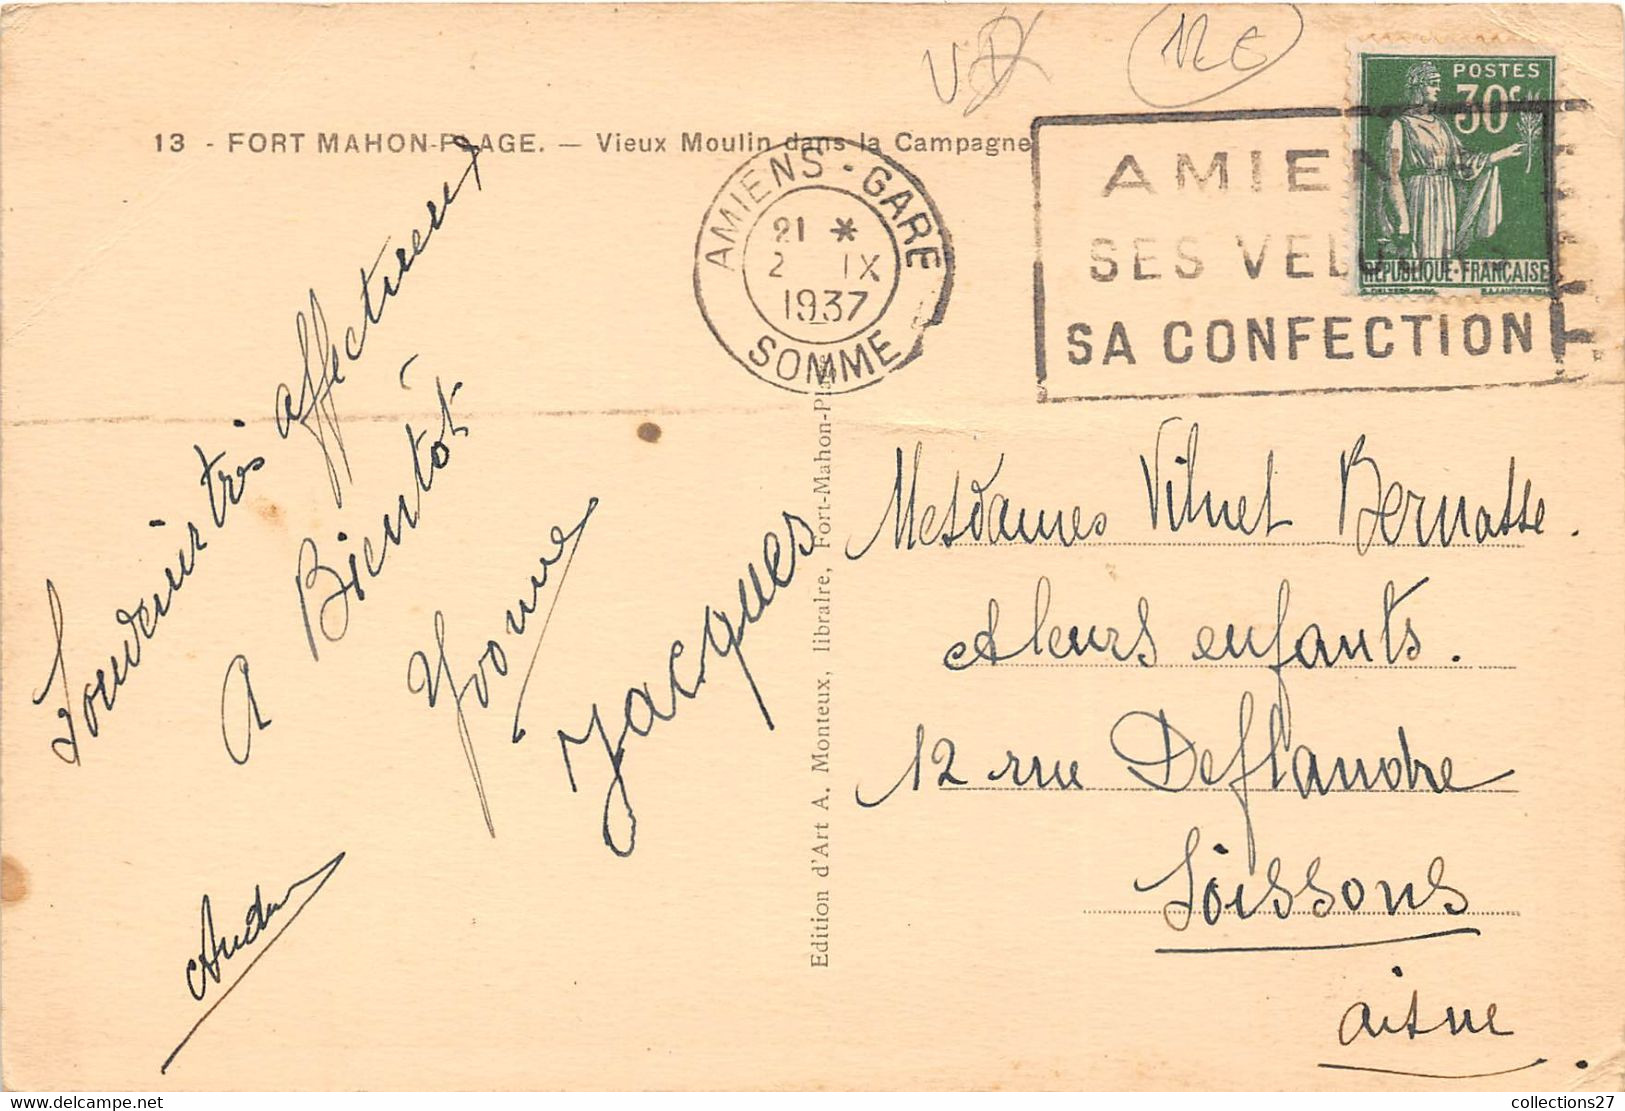 13 - FORT MAHON-PLAGE. — Vieux Moulin dans la Campagne
12 €
POSTES
30c
REPUBLIQUE-FRANÇAISE
AMIENS - GARE
21 *
2 IX
1937
SOMME
AMIENS
SES VELOURS
SA CONFECTION
Souvenirs très affectueux
A Bientôt
Yvonne
Jacques
André
Edition d'Art A. Monteux, libraire, Fort-Mahon-Plage
Mesdames Vilnet Bernasse.
et leurs enfants.
12 rue Deflandre
Soissons
aisne
collections27